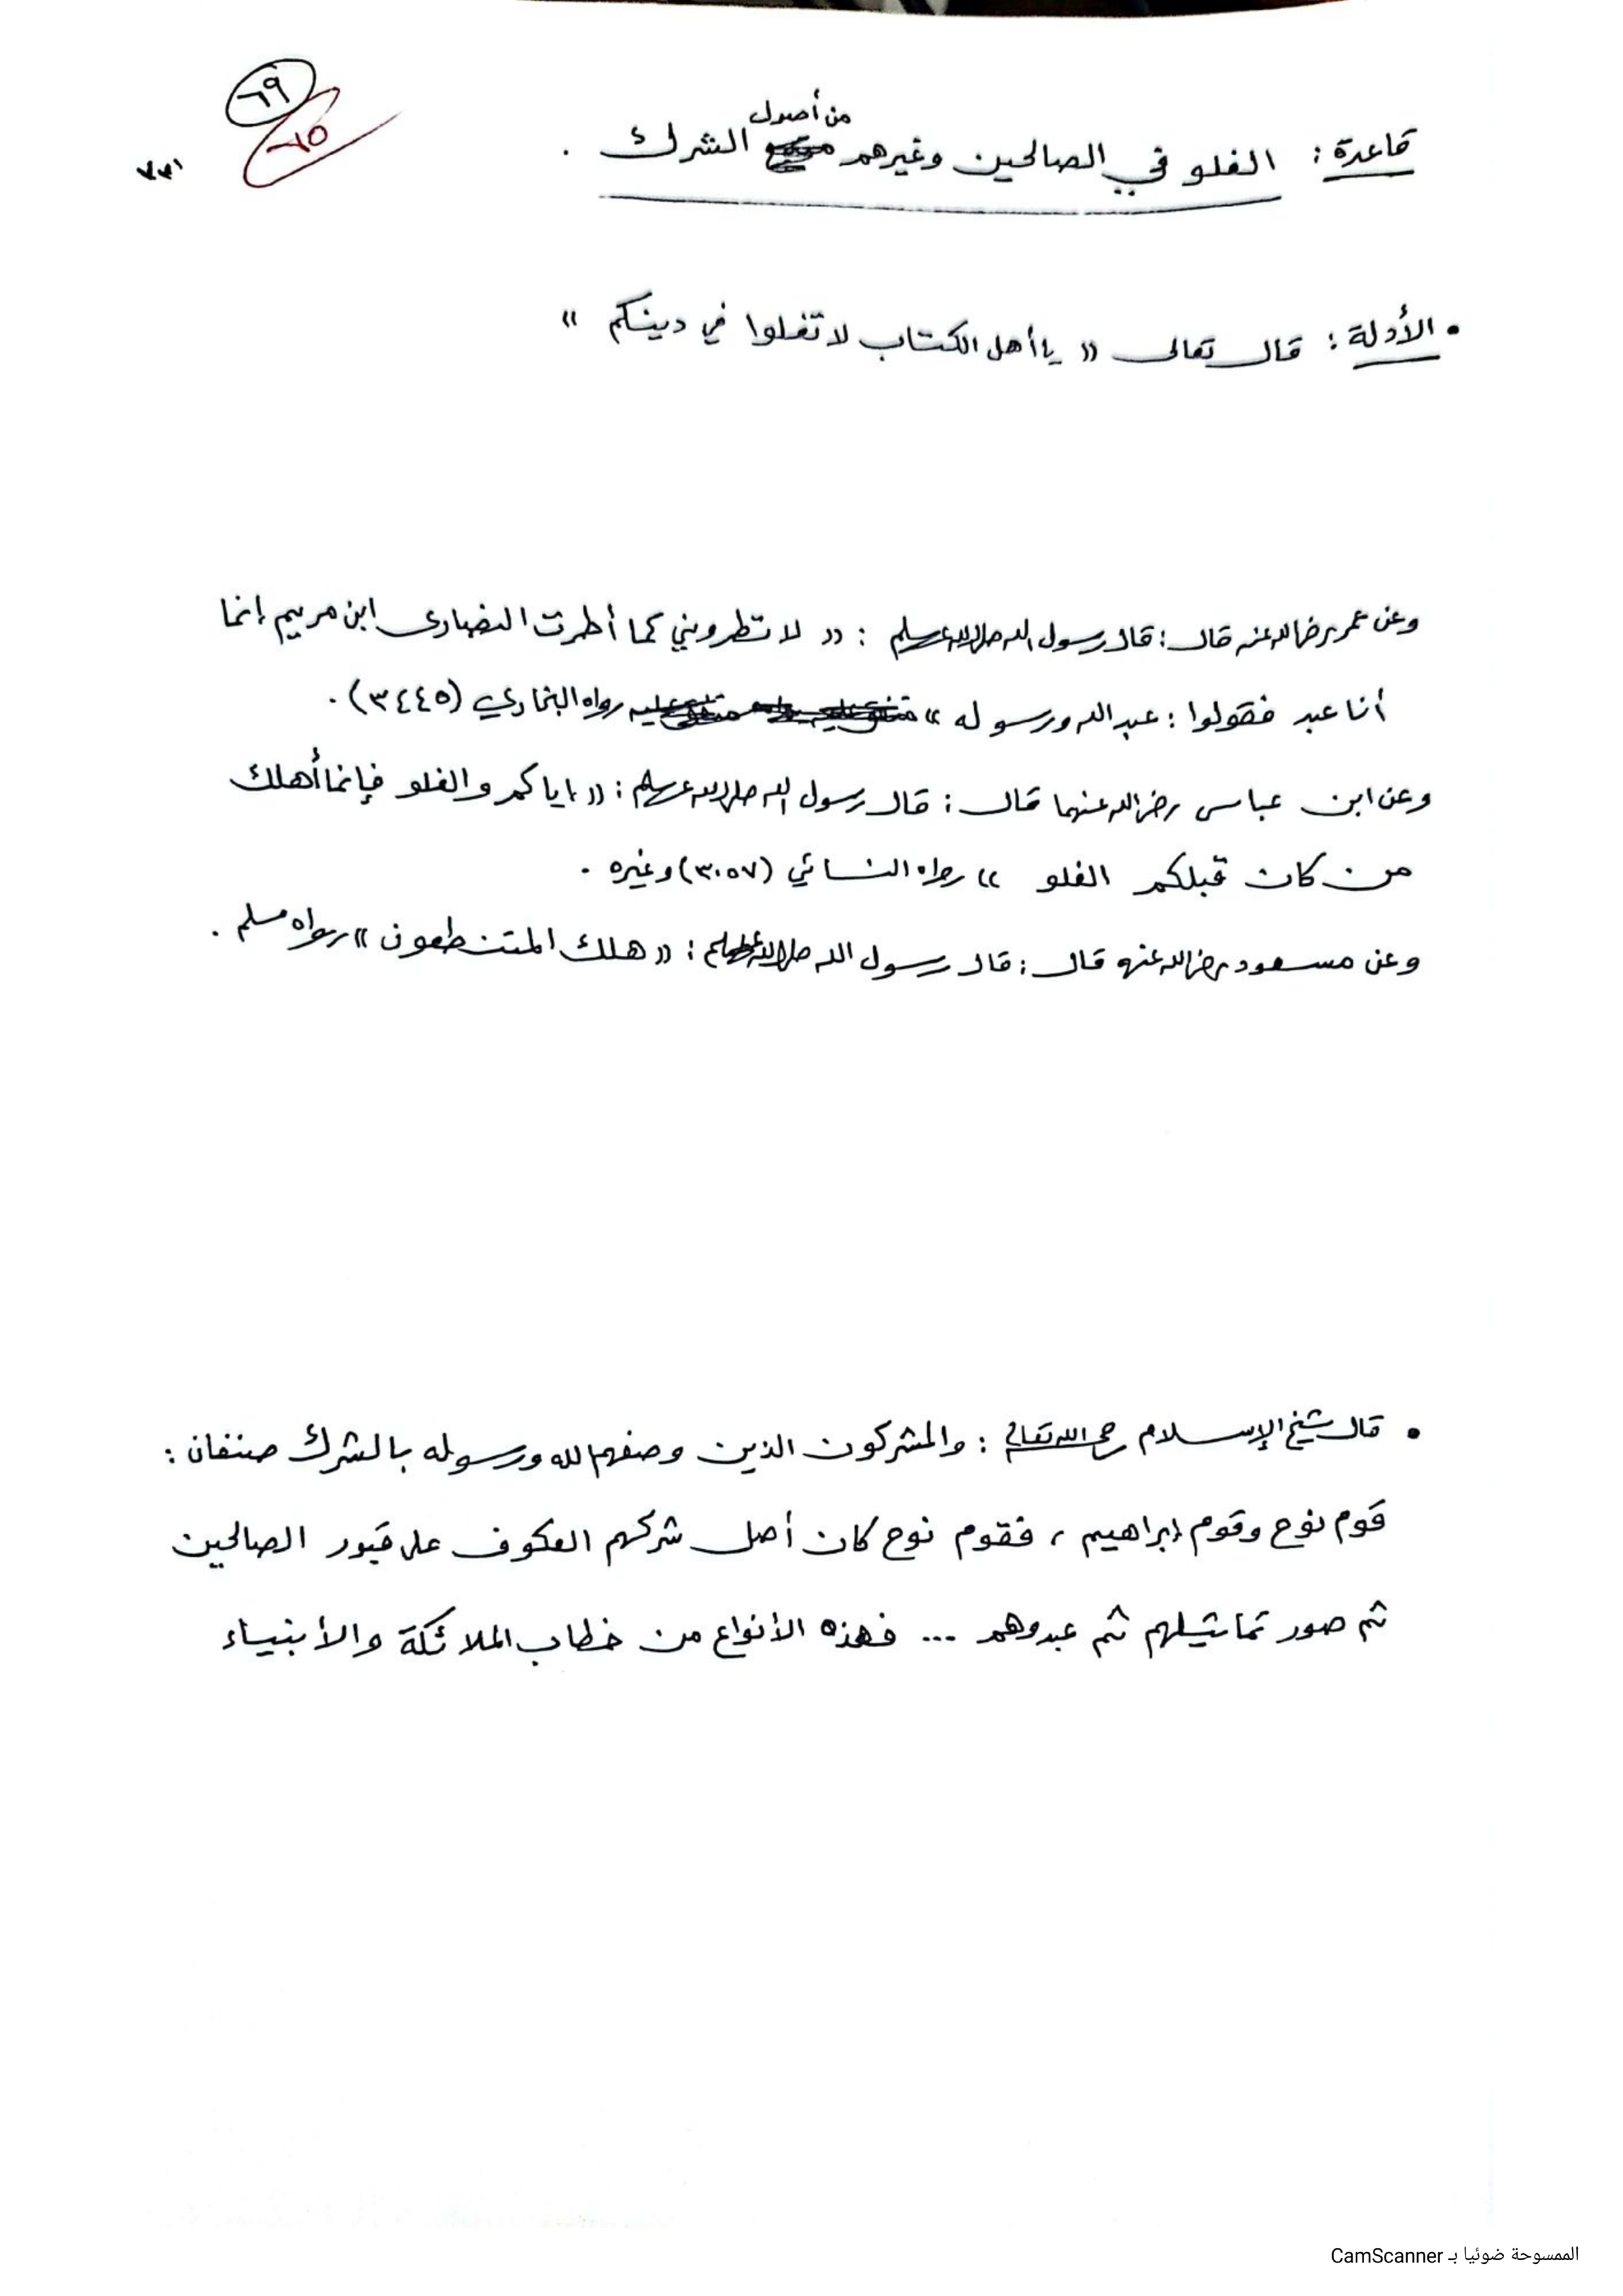 ٦٩
من أصول
٦٥
قاعدة : الغلو في الصالحين وغيرهم الشرك .
• الأدلة : قال تعالى « يا أهل الكتاب لا تغلوا في دينكم »
وعن عمر رضي الله عنه قال : قال رسول الله صلى الله عليه وسلم : « لا تطروني كما أطرت النصارى ابن مريم إنما
أنا عبد فقولوا : عبد الله ورسوله » رواه البخاري (٣٤٤٥) .
وعن ابن عباس رضي الله عنهما قال : قال رسول الله صلى الله عليه وسلم : « إياكم والغلو فإنما أهلك
من كان قبلكم الغلو » رواه النسائي (٣٠٥٧) وغيره .
وعن مسعود رضي الله عنه قال : قال رسول الله صلى الله عليه وسلم : « هلك المتنطعون » رواه مسلم .
• قال شيخ الإسلام رحمه الله تعالى : والمشركون الذين وصفهم الله ورسوله بالشرك صنفان :
قوم نوح وقوم إبراهيم ، فقوم نوح كان أصل شركهم العكوف على قبور الصالحين
ثم صور تماثيلهم ثم عبدوهم ... فهذه الأنواع من خطاب الملائكة والأنبياء
الممسوحة ضوئيا بـ CamScanner